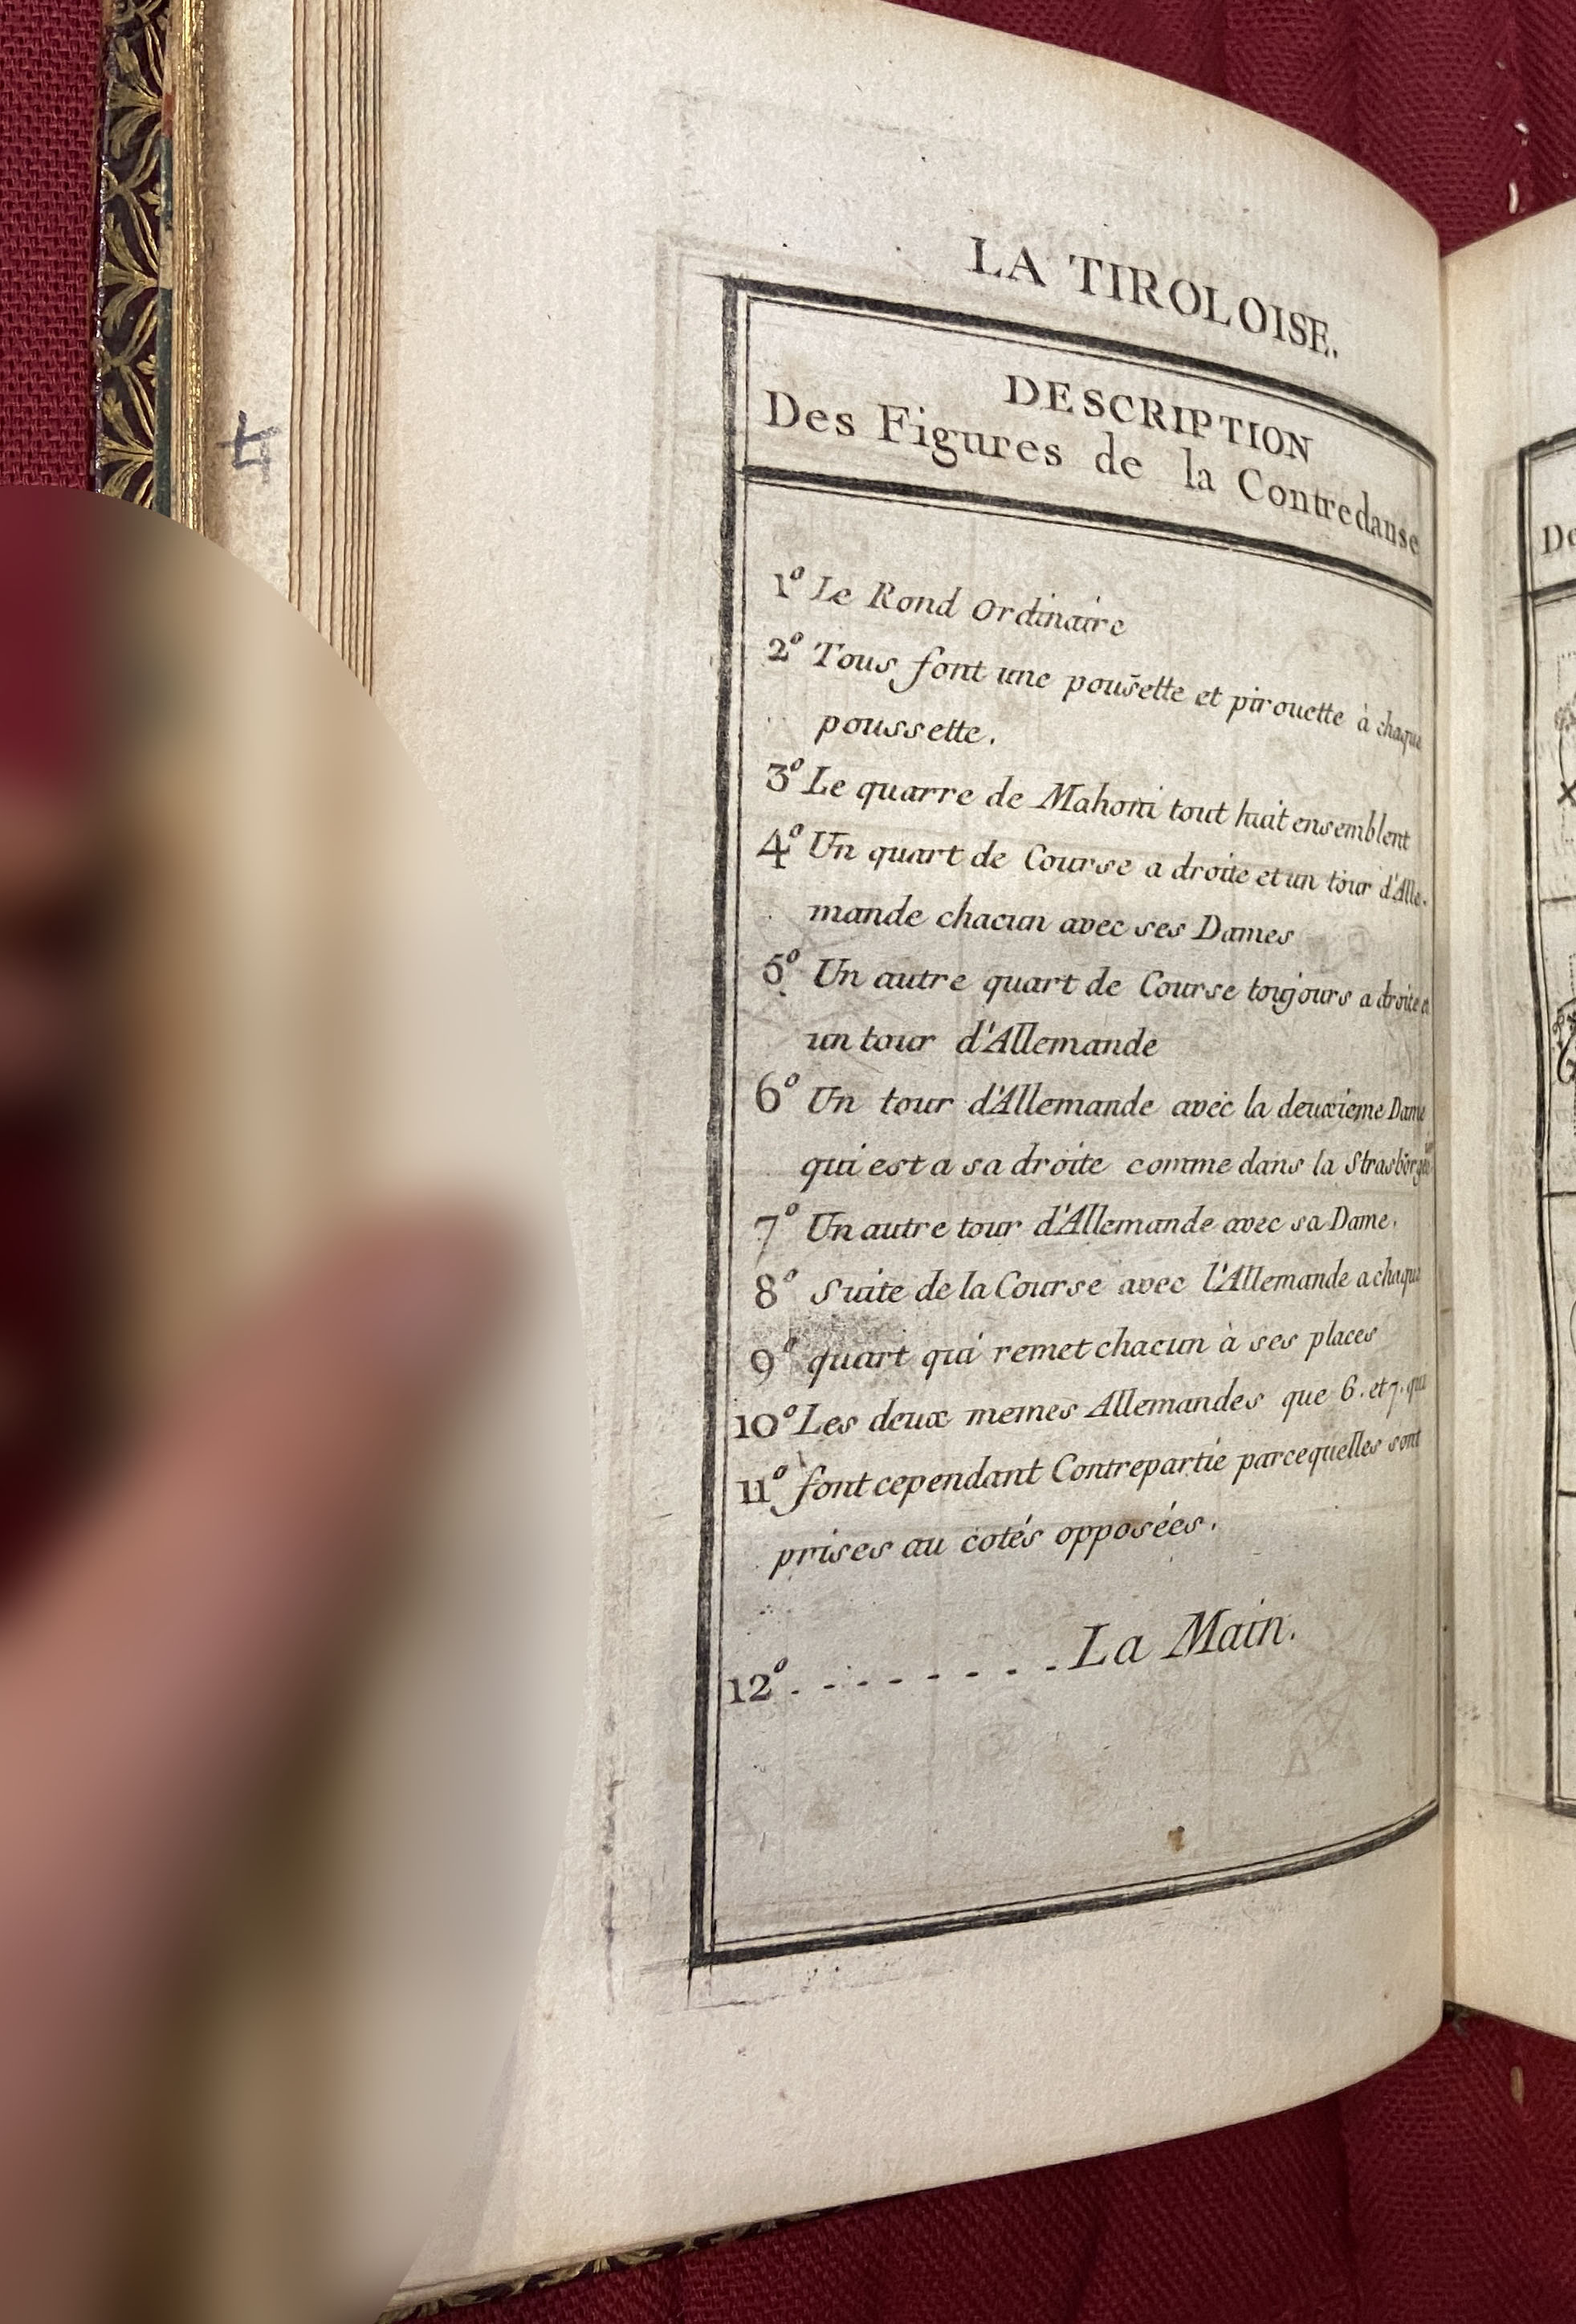 LA TIROLOISE.
DESCRIPTION
Des Figures de la Contredanse
1º Le Rond Ordinaire
2º Tous font une pous̃ette et pirouette à chaque
poussette.
3º Le quarre de Mahoni tout huit ensemblent
4º Un quart de Course a droite et un tour d'Alle-
mande chacun avec ses Dames
5º Un autre quart de Course toujours a droite et
un tour d'Allemande
6º Un tour d'Allemande avec la deuxieme Dame
qui est a sa droite comme dans la
7º Un autre tour d'Allemande avec sa Dame.
8º Suite de la Course avec l'Allemande a chaque
9º quart qui remet chacun à ses places
10º Les deux memes Allemandes que 6. et 7. qui
11º font cependant Contrepartie parcequelles sont
prises au cotés opposées.
12º. - - - - - - - - La Main.
De